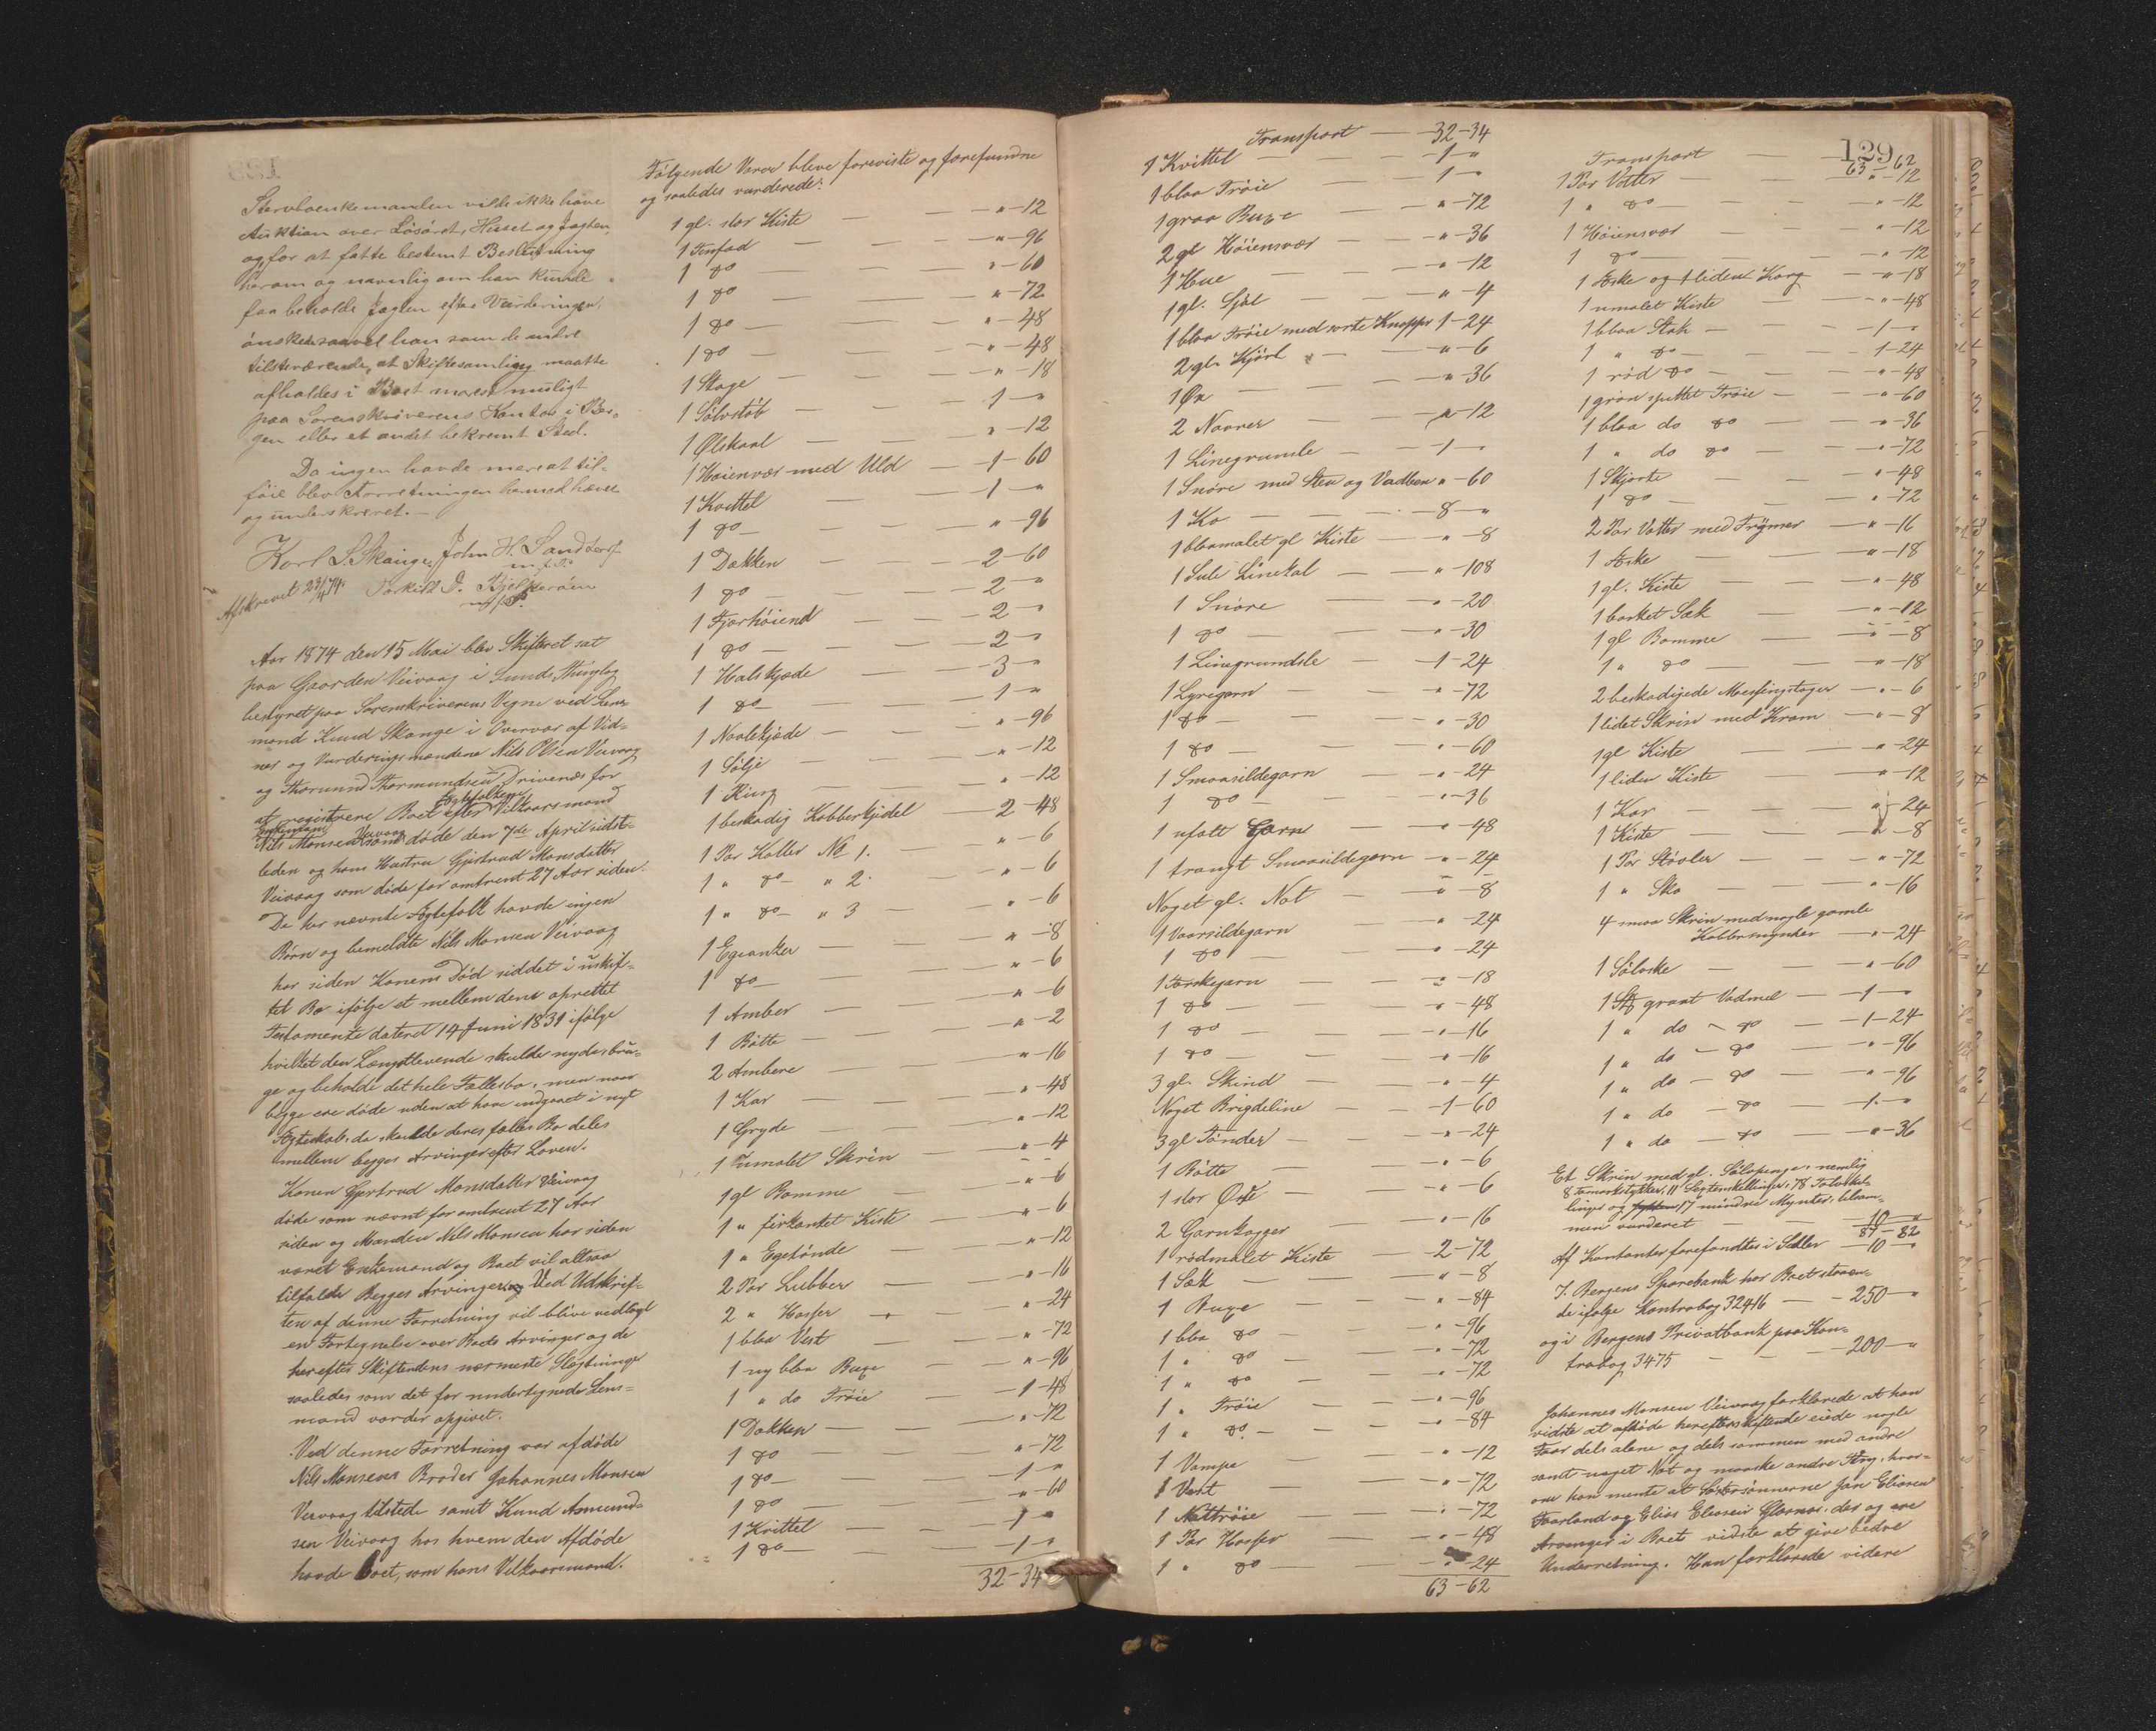 Stervboenkemanden vilde ikke have
Auktion over Løsøret, Huset og Jagten,
og for at fatte bestemt Beslutning
herom og navnlig om han kunde
faa beholde Jagten efter Vurderingen,
ønskede saavel han som de andre
tilstedeværende, at Skiftesamling maatte
afholdes i Boet snarest muligt
paa Sorenskriverens Kontor i Ber-
gen eller et andet bekvemt Sted.
Da ingen havde mere at til-
føie blev Forretningen hermed hævet
og underskrevet.-
Karl S. Skauge. John H. Sand
m. f. P.
Afskrevet 29/4 74. Torkild O.
m. f. P.
Aar 1874 den 15 Mai blev Skifteret sat
paa Gaarden Veivaag i Sunds Thinglag
bestyret paa Sorenskriverens Vegne ved Lens-
mand Knud Skange i Overvær af Vid-
ner og Vurderingsmændene Nils Olsen Veivaag
og Thormund Thormundsen Drivenes for
at registrere Boet efter Ægtefolkene Vilkaarsmand
Enkemand Nils Monsen Veivaag som døde den 7de April sidst-
leden og hans Hustru Gjertrud Monsdatter
Veivaag som døde for omtrent 27 Aar siden.
De her nævnte Ægtefolk havde ingen
Børn og bemeldte Nils Monsen Veivaag
har siden Konens Død siddet i uskif-
tet Bo ifølge et mellem dem oprettet
Testamente dateret 14 Juni 1831 ifølge
hvilket den Længstlevende skulde nyde, bru-
ge og beholde det hele Fællesbo, men naar
begge ere døde uden at have indgaaet i nyt
Ægteskab, da skulde deres fælles Bo deles
mellem begges Arvinger efter Loven.
Konen Gjertrud Monsdatter Veivaag
døde som nævnt for omtrent 27 Aar
siden og Manden Nils Monsen har siden
været Enkemand og Boet vil altsaa
tilfalde Begges Arvinger og Ved Udskrif-
ten af denne Forretning vil blive vedlagt
en Fortegnelse over Boets Arvinger og de
herefter Skiftendens nærmeste Slægtninge
saaledes som det for undertegnede Lens-
mand vorder opgivet.
Ved denne Forretning var afdøde
Nils Monsens Broder Johannes Monsen
Veivaag tilstede samt Knud Asmund-
sen Veivaag hos hvem den Afdøde
havde boet, som hans Vilkaarsmand.
Følgende Varer bleve foreviste og forefundne
og saaledes vurderede:
1 gl. stor Kiste — " - 12
1 Tinfad — " - 96
1 do — " - 60
1 do — " - 72
1 do — " - 48
1 do — " - 48
1 Stage — " - 18
1 Sølvstøb — 1 - "
1 Ølskaal — " - 12
1 Høienvær med Uld — 1 - 60
1 Kvittel — 1 - "
1 do — " - 96
1 Dækken — 2 - 60
1 do — 2 - "
1 Fjærhøiend — 2 - "
1 do — 2 - "
1 Halskjæde — 3 - "
1 do — 1 - "
1 Naalekjæde — " - 96
1 Sølje — " - 12
1 Ring — " - 12
1 beskadig Kobberkjedel — 2 - 48
1 Par Kaller No 1. — " - 6
1 " do — " 2. — " - 6
1 " do — " 3 — " - 6
1 Egeanker — " - 8
1 do — " - 6
1 Amber — " - 6
1 Bøtte — " - 2
2 Ambere — " - 16
1 Kar — " - 48
1 Gryde — " - 12
1 umalet Skrin — " - 4
1 gl Bomme — " - 6
1 " firkantet Kiste — " - 6
1 " Egetønde — " - 12
2 Par Lubber — " - 16
2 " Hoser — " - 24
1 blaa Vest — " - 72
1 ny blaa Buxe — " - 96
1 " do Trøie — 1 - 48
1 Dækken — " - 72
1 do — " - 72
1 do — 1 - "
1 do — " - 60
1 Kvittel — 1 - "
1 do — 1 - "
32 - 34
Transport — 32 - 34
1 Kvittel — 1 - "
1 blaa Trøie — 1 - "
1 graa Buxe — " - 72
2 gl Høiensvær — " - 36
1 Hue — " - 12
1 gl. Sjøl — " - 4
1 blaa Trøie med sorte Knapper 1 - 24
2 gl. Kjørl — " - 6
1 Øx — " - 36
2 Navrer — " - 12
1 Linegrunsle — 1 - "
1 Snøre med Sten og Vadbeen " - 60
1 Ko — 8 - "
1 blaamalet gl Kiste — " - 8
1 Sule Linekal — " - 108
1 Snøre — " - 20
1 do — " - 30
1 Linegrundsle — 1 - 24
1 Lyregarn — " - 72
1 do — " - 30
1 do — " - 60
1 Smaasildegarn — " - 24
1 do — " - 36
1 ufalt Garn — " - 48
1 trangt Smaasildegarn — " - 24
Noget gl. Not — " - 8
1 Vaarsildegarn — " - 24
1 do — " - 24
1 Torskegarn — " - 18
1 do — " - 48
1 do — " - 16
1 do — " - 16
3 gl. Skind — " - 4
Noget Brigdeline — 1 - 60
3 gl Tønder — " - 24
1 Bøtte — " - 6
1 stor Øse — " - 6
2 Garnkagger — " - 16
1 rødmalet Kiste — 2 - 72
1 Sæk — " - 8
1 Buxe — " - 84
1 blaa do — " - 96
1 " do — " - 72
1 " do — " - 72
1 " Trøie — " - 96
1 " do. — " - 84
1 Vampe — " - 12
1 Vest — " - 72
1 Nattrøie — " - 72
1 Par Hoser — " - 48
1 " do — " - 24
63 - 62
129
Transport — 63 - 62
1 Par Votter — " - 12
1 " do — " - 12
1 Høiensvær — " - 12
1 do — " - 12
1 Æske og 1 liden Korg — " - 18
1 umalet Kiste — " - 48
1 blaa Stak — 1 - "
1 " do — 1 - 24
1 rød do — " - 48
1 grøn spettet Trøie — " - 60
1 blaa do do — " - 36
1 " do do — " - 72
1 Skjorte — " - 48
1 do — " - 72
2 Par Votter med Trymer — " - 16
1 Æske — " - 18
1 gl. Kiste — " - 48
1 barket Sæk — " - 12
1 gl Bomme — " - 8
1 " do — " - 18
2 beskadigede Messingstager — " - 6
1 lidet Skrin med Kram — " - 8
1 gl Kiste — " - 24
1 liden Kiste — " - 12
1 Kar — " - 24
1 Kiste — " - 8
1 Par Støvler — " - 72
1 " Sko — " - 16
4 smaa Skrin med nogle gamle
Kobbermynter — " - 24
1 Sølvske — " - 60
1 Stk graat Vadmel — 1 - "
1 " do - do — 1 - 24
1 " do - do — " - 96
1 " do - do — " - 96
1 " do - do — 1 - "
1 " do - do — " - 36
Et Skrin med gl. Sølvpenge, nemlig
8 Tomarkstykker, 11 Sextenskillinger, 78 Tolvskil-
linger og 17 mindre Mynter, tilsam-
men vurderet — 10 "
87 - 82
Af Kontanter forefandtes i Sedler — 10 - "
I Bergens Sparebank har Boet staaen-
de ifølge Kontrabog 32416 — 250 - "
og i Bergens Privatbank paa Kon-
trabog 3475 — 200 - "
Johannes Monsen Veivaag forklarede at han
vidste at afdøde herefterskiftende eiede nogle
Faar dels alene og dels sammen med andre
samt noget Not og maaske andre Ting, hvor-
om han mente at Søstersønnerne Jan Eliasen
Faarland og Elias Eliasen Glæsnes, der og ere
Arvinger i Boet vidste at give bedre
Underretning. Han forklarede videre